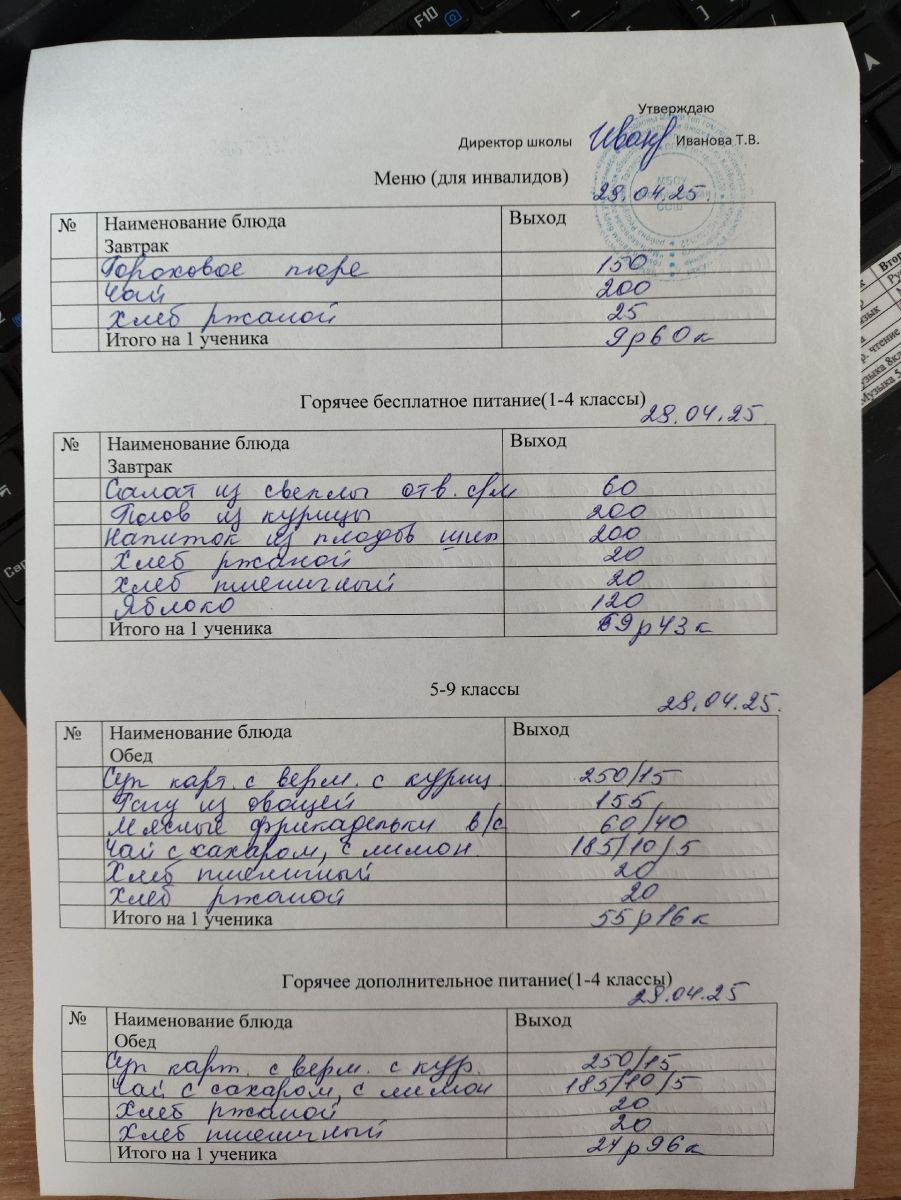 Утверждаю
Директор школы Иванова Т.В.
Меню (для инвалидов)
29.04.25.
№ Наименование блюда Выход
Завтрак
Гороховое пюре 150
Чай 200
Хлеб ржаной 25
Итого на 1 ученика 9р60к
Горячее бесплатное питание(1-4 классы)
29.04.25.
№ Наименование блюда Выход
Завтрак
Салат из свеклы отв. с/м 60
Полов из курицы 200
Напиток из плодов шип 200
Хлеб ржаной 20
Хлеб пшеничный 20
Яблоко 120
Итого на 1 ученика 69р43к
5-9 классы
29.04.25.
№ Наименование блюда Выход
Обед
Суп карт. с верм. с куриц. 250/15
Рагу из овощей 155
Мясные фрикадельки в/с 60/40
Чай с сахаром, с лимон. 185/10/5
Хлеб пшеничный 20
Хлеб ржаной 20
Итого на 1 ученика 55р16к
Горячее дополнительное питание(1-4 классы)
29.04.25
№ Наименование блюда Выход
Обед
Суп карт. с верм. с кур. 250/15
Чай с сахаром, с лимон 185/10/5
Хлеб ржаной 20
Хлеб пшеничный 20
Итого на 1 ученика 24р96к